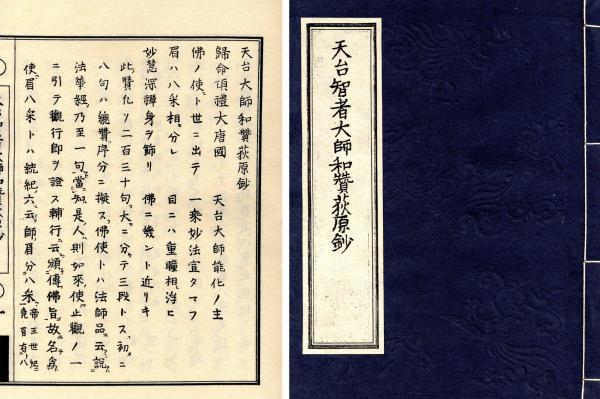 天台智者大師和讃荻原鈔
天台大師和讃荻原鈔
歸命頂禮大唐國　天台大師能化ノ主
佛ノ使ト世ニ出テ　一乘妙法宣タマフ
眉ハ八采相分レ　目ニハ重瞳相浮ヒ
妙慧深禪身ヲ飾リ　佛ニ幾ント近リキ
此讃凡ソ二百三十句大ニ分テ三段トス初ニ
八句ハ總讃序分ニ擬ス佛使トハ法師品云說
法華經乃至一句當知是人則如來使止觀ノ一
ニ引テ觀行即ヲ證ス輔行云頒傳佛旨故名爲
使眉八采トハ統紀六云師眉分八采帝王世紀堯眉有八